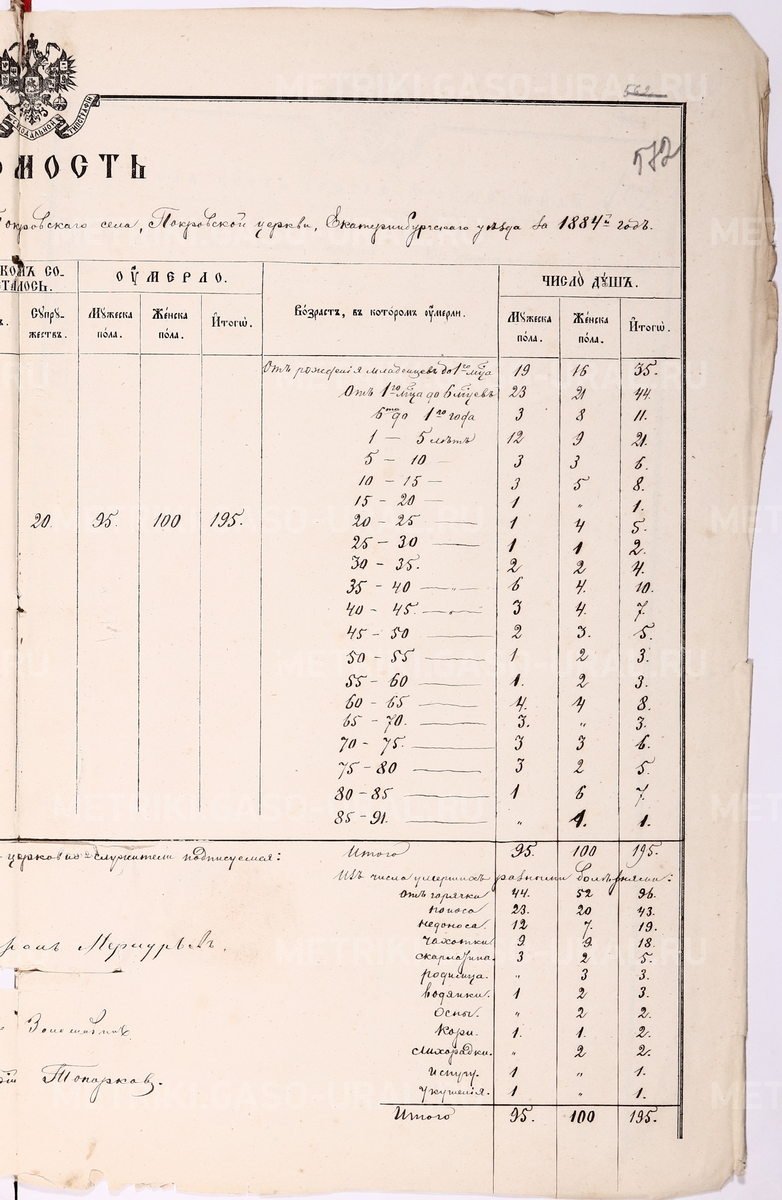 СИНОДАЛЬНОЙ ТИПОГРАФІИ
562
572
ОМОСТЬ
Покровскаго села, Покровской церкви, Екатеринбургскаго уѣзда за 1884й годъ.
КОМЪ СО-
СТАЛОСЬ.
ОУМЕРЛО.
ЧИСЛО ДУШЪ.
Супру-
жествъ.
Мужеска
пола.
Женска
пола.
Итогѡ.
Возрастъ, въ которомъ оумерли.
Мужеска
пола.
Женска
пола.
Итогѡ.
Отъ рожденія младенцевъ до 1го мца 19 16 35.
Отъ 1го мца до 6 мцевъ 23 21 44.
6ти до 1го года 3 8 11.
1 — 5 лѣтъ 12 9 21.
5 — 10 — 3 3 6.
10 — 15 — 3 5 8.
15 — 20 — 1 „ 1.
20. 95. 100 195. 20 — 25 — 1 4 5.
25 — 30 — 1 1 2.
30 — 35. 2 2 4.
35 — 40 — „ — 6 4. 10.
40 — 45. — „ — 3 4. 7.
45 — 50 — 2 3. 5.
50 — 55 — 1 2 3.
55 — 60 — 1. 2 3.
60 — 65 — 4. 4 8.
65 — 70. — 3. „ 3.
70 — 75. — 3 3 6.
75 — 80 — 3 2 5.
80 — 85 — 1 6 7.
85 — 91. — „ 1. 1.
церковно-служители подписуемая: Итого 95. 100 195.
Изъ числа умершихъ разными болѣзнями:
отъ горячки 44. 52 96.
поноса 23. 20 43.
недоноса. 12 7. 19.
чахотки 9 9. 18.
скарлатина. 3 2 5.
родимца. „ 3 3.
водянки. 1 2 3.
Оспы. „ 2 2.
Кори. 1. 1. 2.
лихорадки. „ 2 2.
испугу. 1 „ 1.
укушенія. 1 „ 1.
Топорковъ.
Итого 95. 100 195.
METRIKI.GASO-URAL.RU